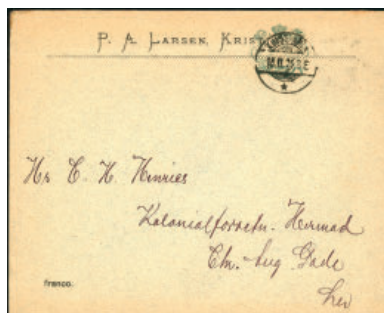 P. A. LARSEN, KRIST
Hr C. H. Hinries
Kolonialforretn. Hermad
Chr. Aug Gade
her
franco.